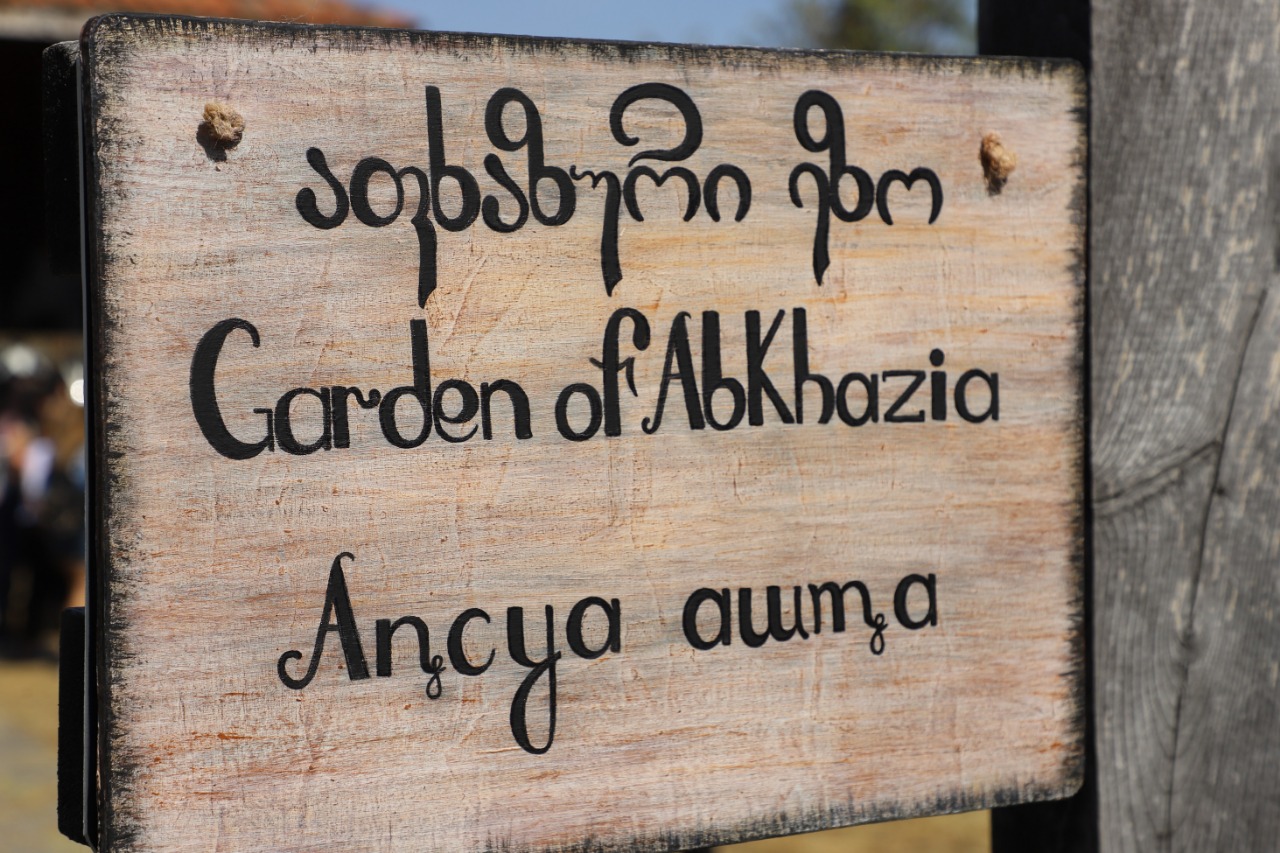 აფხაზური ეზო
Garden of Abkhazia
Аԥсуа ашҭа